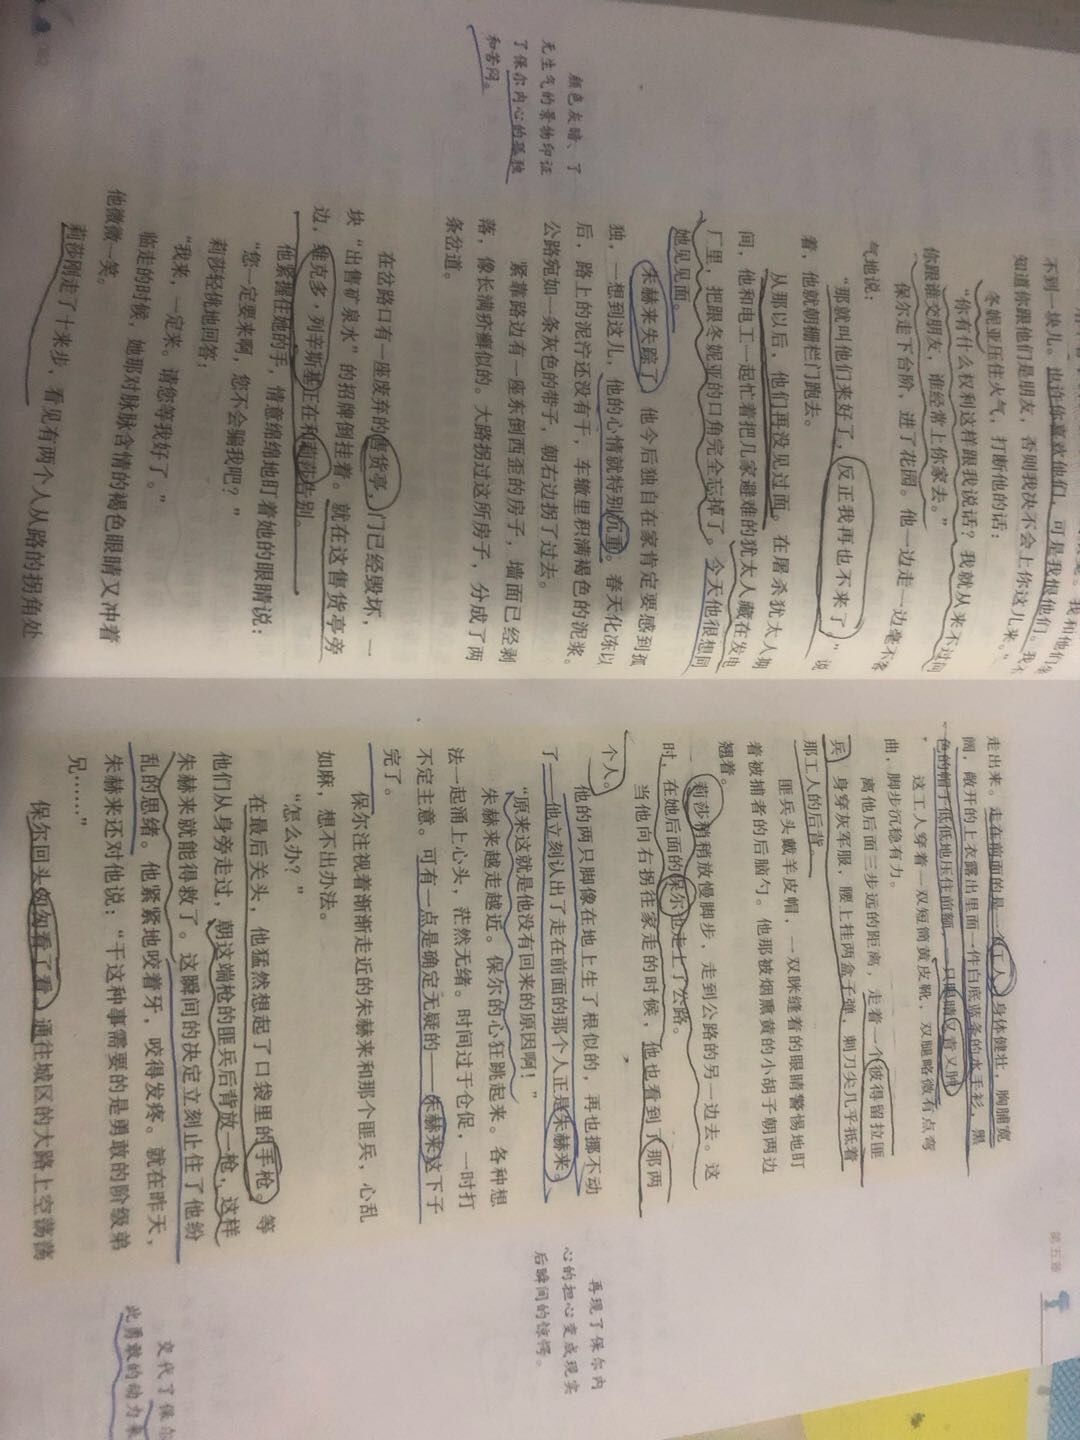 不到一块儿。也许你喜欢他们，可是我恨他们。我
知道你跟他们是朋友，否则我决不会上你这儿来。”
冬妮亚压住火气，打断他的话：
“你有什么权利这样跟我说话？我就从来不过问
你跟谁交朋友，谁经常上你家去。”
保尔走下台阶，进了花园。他一边走一边毫不客
气地说：
“那就叫他们来好了，反正我再也不来了，”说
着，他就朝栅栏门跑去。
从那以后，他们再没见过面。在屠杀犹太人期
间，他和电工一起忙着把几家避难的犹太人藏在发电
厂里，把跟冬妮亚的口角完全忘掉了。今天他很想同
她见见面。
朱赫来失踪了，他今后独自在家肯定要感到孤
独，一想到这儿，他的心情就特别沉重。春天化冻以
后，路上的泥泞还没有干，车辙里积满褐色的泥浆。
公路宛如一条灰色的带子，朝右边拐了过去。
紧靠路边有一座东倒西歪的房子，墙面已经剥
落，像长满疥癣似的。大路拐过这所房子，分成了两
条岔道。
在岔路口有一座废弃的售货亭，门已经毁坏，一
块“出售矿泉水”的招牌倒挂着。就在这售货亭旁
边，维克多，列辛斯基正在和莉莎告别。
他紧握住她的手，情意绵绵地盯着她的眼睛说：
“您一定要来啊，您不会骗我吧？”
莉莎轻佻地回答：
“我来，一定来。请您等我好了。”
临走的时候，她那对脉脉含情的褐色眼睛又冲着
他微微一笑。
莉莎刚走了十来步，看见有两个人从路的拐角处
颜色灰暗、了
无生气的景物印证
了保尔内心的孤独
和苦闷。
第五章
走出来。走在前面的是一个工人，身体健壮，胸脯宽
阔，敞开的上衣露出里面一件白底蓝条的水手衫，黑
色的帽子低低地压住前额，一只眼睛又青又肿
这工人穿着一双短筒黄皮靴，双腿略微有点弯
曲，脚步沉稳有力。
离他后面三步远的距离，走着一个彼得留拉匪
兵，身穿灰军服，腰上挂两盒子弹，刺刀尖几乎抵着
那工人的后背。
匪兵头戴羊皮帽，一双眯缝着的眼睛警惕地盯
着被捕者的后脑勺。他那被烟熏黄的小胡子朝两边
翘着。
莉莎稍稍放慢脚步，走到公路的另一边去。这
时，在她后面的保尔也走上了公路。
当他向右拐往家走的时候，他也看到了那两
个人。
他的两只脚像在地上生了根似的，再也挪不动
了——他立刻认出了走在前面的那个人正是朱赫来。
“原来这就是他没有回来的原因啊！”
朱赫来越走越近。保尔的心狂跳起来。各种想
法一起涌上心头，茫然无绪。时间过于仓促，一时打
不定主意。可有一点是确定无疑的——朱赫来这下子
完了。
保尔注视着渐渐走近的朱赫来和那个匪兵，心乱
如麻，想不出办法。
“怎么办？”
在最后关头，他猛然想起了口袋里的手枪。等
他们从身旁走过，朝这端枪的匪兵后背放一枪，这样
朱赫来就能得救了。这瞬间的决定立刻止住了他纷
乱的思绪。他紧紧地咬着牙，咬得发疼。就在昨天，
朱赫来还对他说：“干这种事需要的是勇敢的阶级弟
兄……”
保尔回头匆匆看了看，通往城区的大路上空荡荡
再现了保尔内
心的担心变成现实
后瞬间的惊愕。
交代了保尔
此勇敢的动力